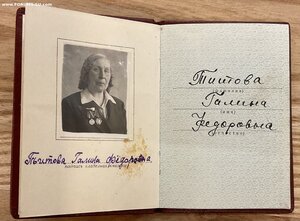 Титова Галина Фёдоровна
Титова
(фамилия)
Галина
(имя)
Федоровна
(отчество)